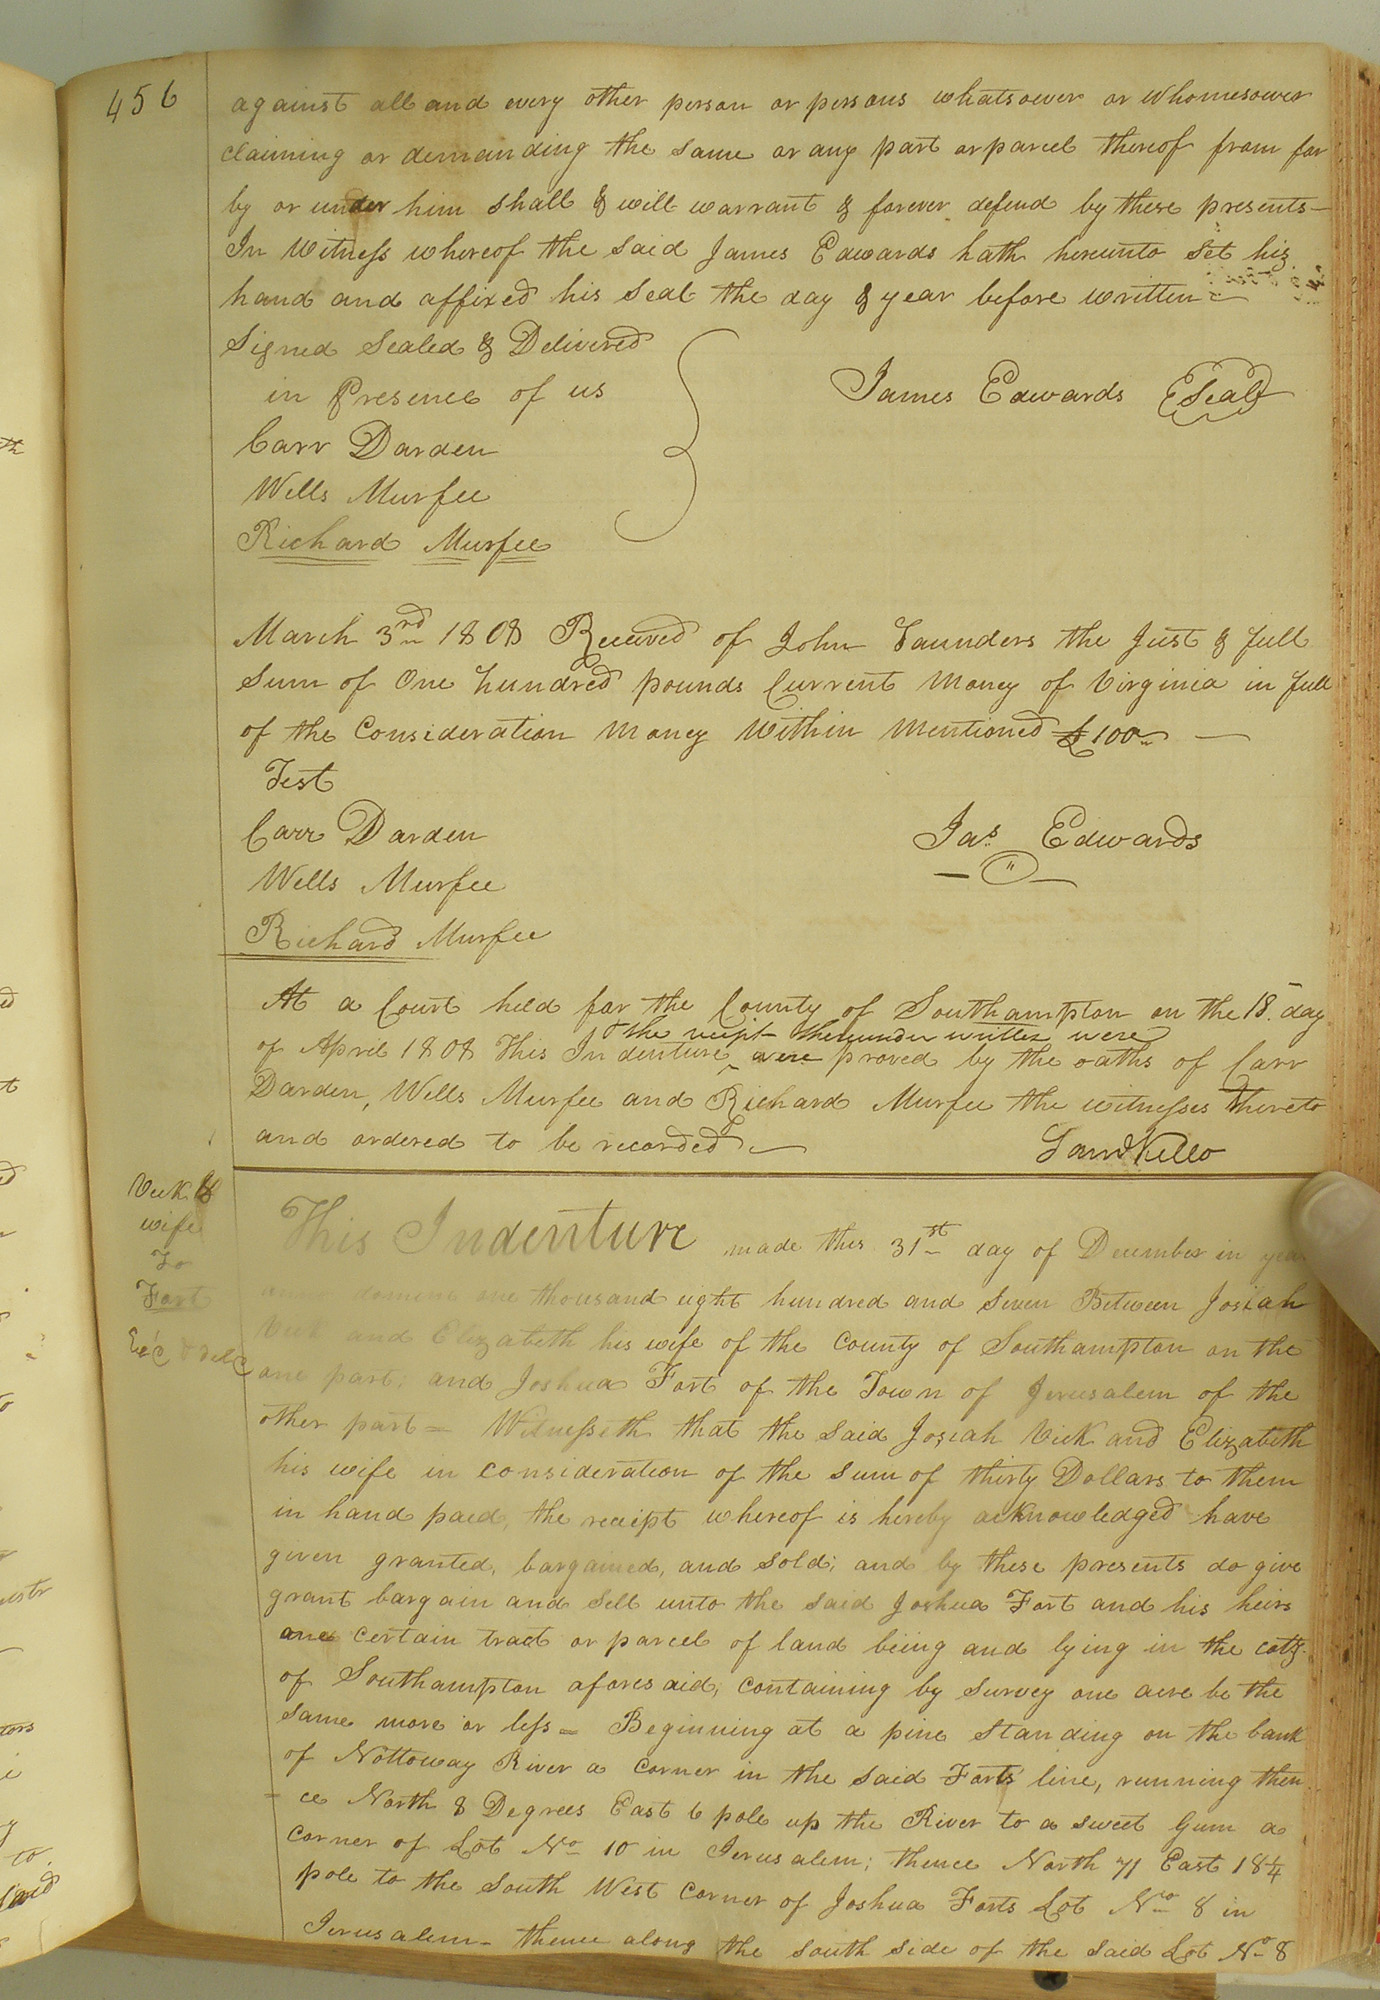 456
against all and every other person or persons whatsoever or whomesoever
claiming or demanding the same or any part or parcel thereof from for
by or under him shall & will warrant & forever defend by these presents—
In Witness whereof the said James Edwards hath hereunto set his
hand and affixed his seal the day & year before written—
Signed Sealed & Delivered
in Presence of us
James Edwards Seal
Carr Darden
Wells Murfee
Richard Murfee
March 3rd 1808 Received of John Saunders the Just & full
Sum of One hundred pounds Current Money of Virginia in full
of the Consideration Money Within Mentioned £100 —
Test
Carr Darden
Jas. Edwards
Wells Murfee
Richard Murfee
At a Court held for the County of Southampton on the 18. day
the receipt thereunder written were
of April 1808 This Indenture were proved by the oaths of Carr
Darden, Wells Murfee and Richard Murfee the witnesses thereto
and ordered to be recorded —
Saml Kello
Vick &
wife
To
Fort
This Indenture made this 31st day of December in year
anno domini one thousand eight hundred and Seven Between Josiah
Vick and Elizabeth his wife of the County of Southampton on the
one part; and Joshua Fort of the Town of Jerusalem of the
other part = Witnesseth that the said Josiah Vick and Elizabeth
his wife in consideration of the sum of thirty Dollars to them
in hand paid, the receipt whereof is hereby acknowledged have
given granted, bargained, and sold; and by these presents do give
grant bargain and sell unto the said Joshua Fort and his heirs
one certain tract or parcel of land being and lying in the coty.
of Southampton aforesaid, containing by survey one acre be the
same more or less = Beginning at a pine standing on the bank
of Nottoway River a corner in the said Forts line, running then
- ce North 8 Degrees East 6 pole up the River to a sweet Gum a
corner of Lot No 10 in Jerusalem; thence North 71 East 18¼
pole to the South West corner of Joshua Forts Lot No 8 in
Jerusalem - thence along the south side of the said Lot No 8